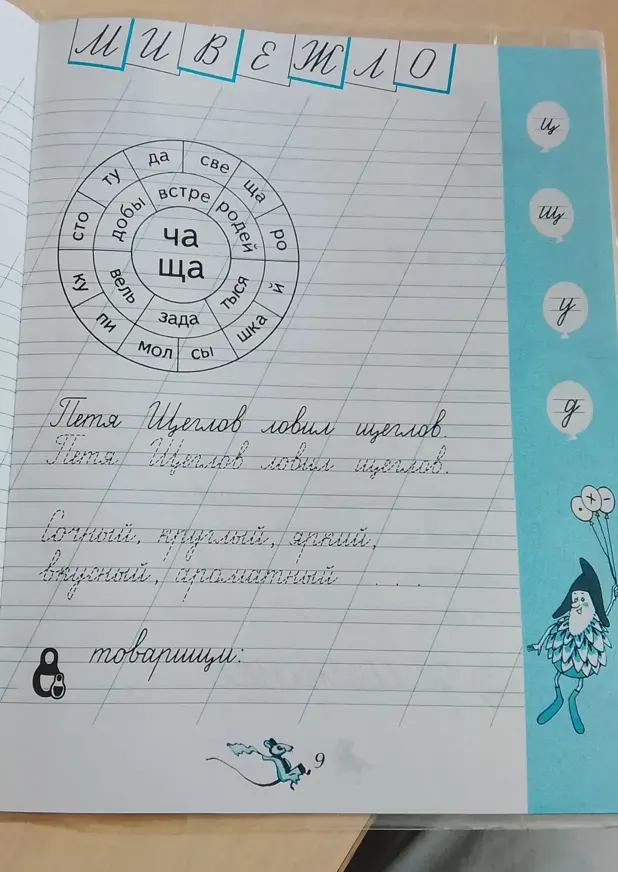 М И В Е Ж Л О
да све ща ро й шка сы мол пи ку сто ту
встре родей тыся зада вель добы
ча
ща
Петя Щеглов ловил щеглов.
Петя Щеглов ловил щеглов.
Сочный, круглый, яркий,
вкусный, ароматный ....
товарищи:
9
ц
щ
у
д